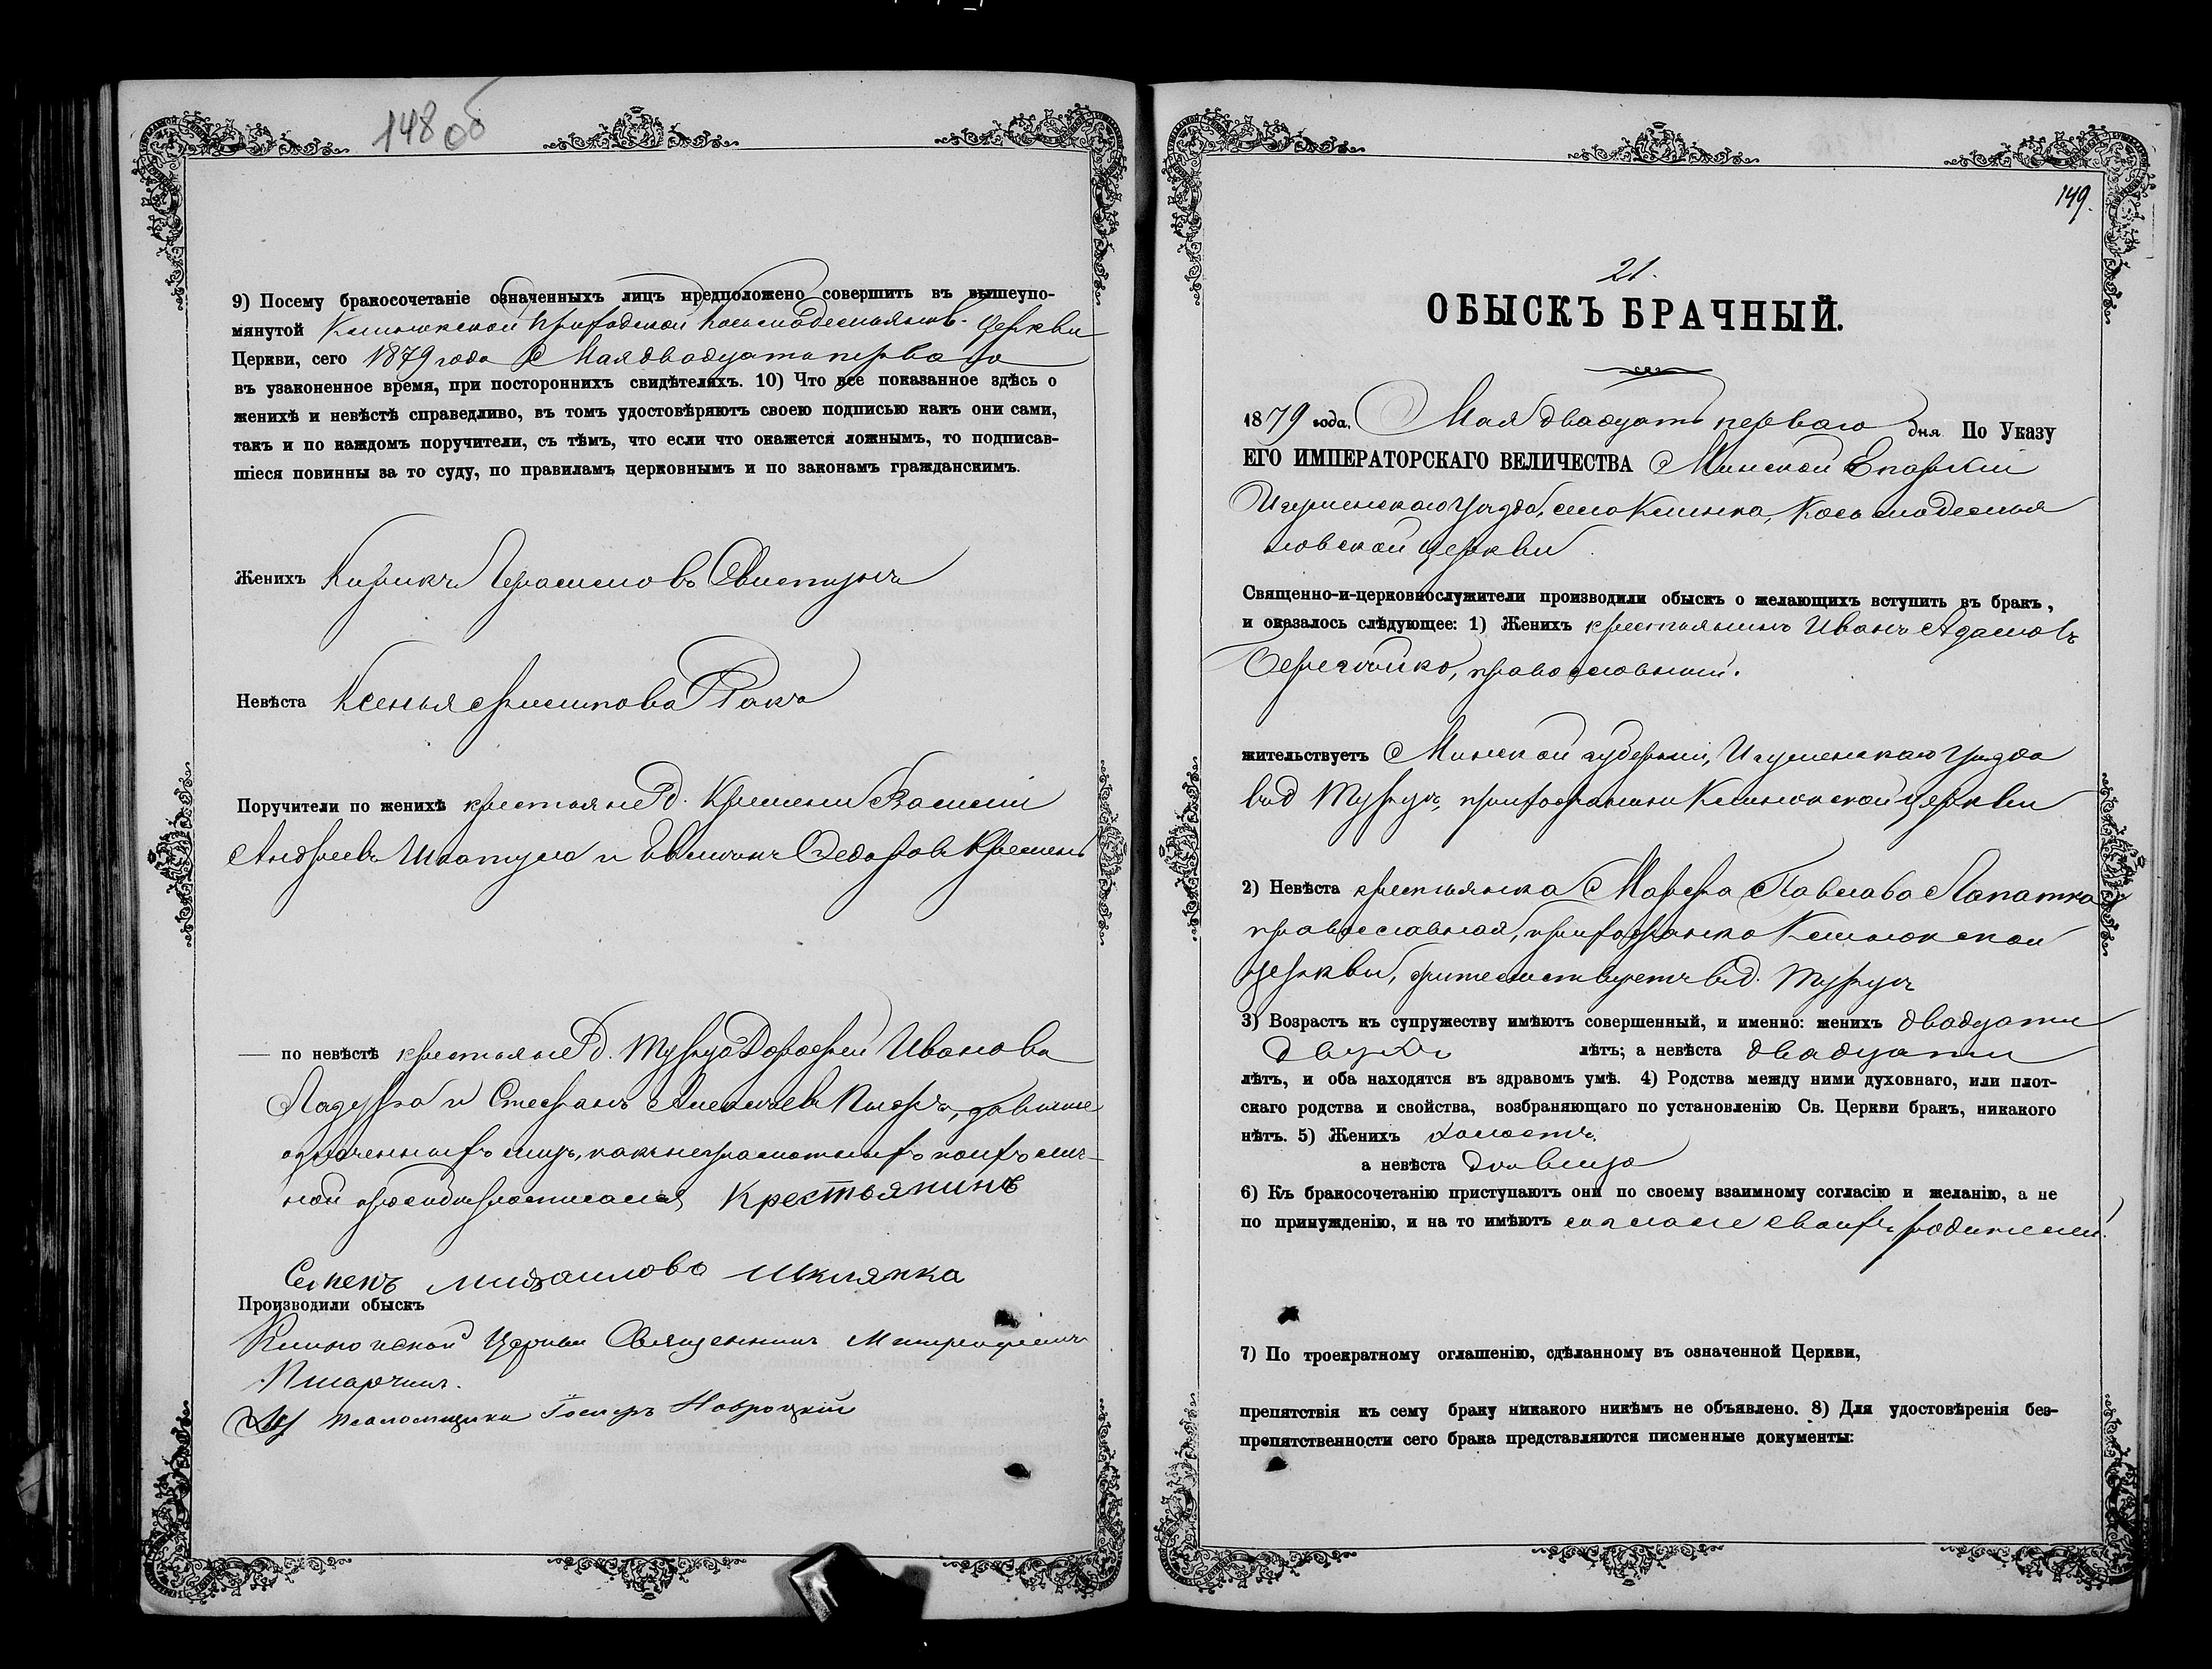 148 об
9) Посему бракосочетаніе означенныхъ лицъ предположено совершить въ вышеупо-
мянутой Клинокской Приходской Космодемьянов. Церкви
Церкви, сего 1879 года Мая двадцать перваго
въ узаконенное время, при постороннихъ свидѣтеляхъ. 10) Что все показанное здѣсь о
женихѣ и невѣстѣ справедливо, въ томъ удостовѣряютъ своею подписью какъ они сами,
такъ и по каждомъ поручители, съ тѣмъ, что если что окажется ложнымъ, то подписав-
шіеся повинны за то суду, по правиламъ церковнымъ и по законамъ гражданскимъ.
Женихъ Кирикъ Герасимовъ Свистунъ
Невѣста Ксенья Рака
Поручители по женихѣ крестьяне д. Кремени Василій
Андреевъ Шкатула и Федоровъ Кремень
— по невѣстѣ крестьяне д. Турца Дорофей Ивановъ
и Стефанъ Алексѣевъ
личъ-
ной просьбѣ росписался Крестьянинъ
Семенъ Михаиловъ Шклянка
Производили обыскъ
Клинокской Церкви Священникъ Митрофанъ
Псаломщикъ Іосифъ Новроцкій
149.
21.
ОБЫСКЪ БРАЧНЫЙ.
1879 года, Мая двадцать перваго дня По Указу
ЕГО ИМПЕРАТОРСКАГО ВЕЛИЧЕСТВА Минской Епархіи
Игуменскаго Уѣзда, села Клинка, Космодемья
новской церкви
Священно-и-церковнослужители производили обыскъ о желающихъ вступить въ бракъ,
и оказалось слѣдующее: 1) Женихъ крестьянинъ Иванъ Адамовъ
православный.
жительствуетъ Минской губерніи, Игуменскаго Уѣзда
въ д Турцѣ, прихожанинъ Клинокской церкви
2) Невѣста крестьянка Марфа Павлова Лапатка
православная, прихожанка Клинокской
церкви, жительствуетъ въ д. Турцѣ
3) Возрастъ къ супружеству имѣютъ совершенный, и именно: женихъ двадцати
двухъ лѣтъ; а невѣста двадцати
лѣтъ, и оба находятся въ здравомъ умѣ. 4) Родства между ними духовнаго, или плот-
скаго родства и свойства, возбраняющаго по установленію Св. Церкви бракъ, никакого
нѣтъ. 5) Женихъ холостъ,
а невѣста дѣвица
6) Къ бракосочетанію приступаютъ они по своему взаимному согласію и желанію, а не
по принужденію, и на то имѣютъ согласіе своихъ родителей.
7) По троекратному оглашенію, сдѣланному въ означенной Церкви,
препятствія къ сему браку никакого никѣмъ не объявлено. 8) Для удостовѣренія без-
препятственности сего брака представляются писменные документы: